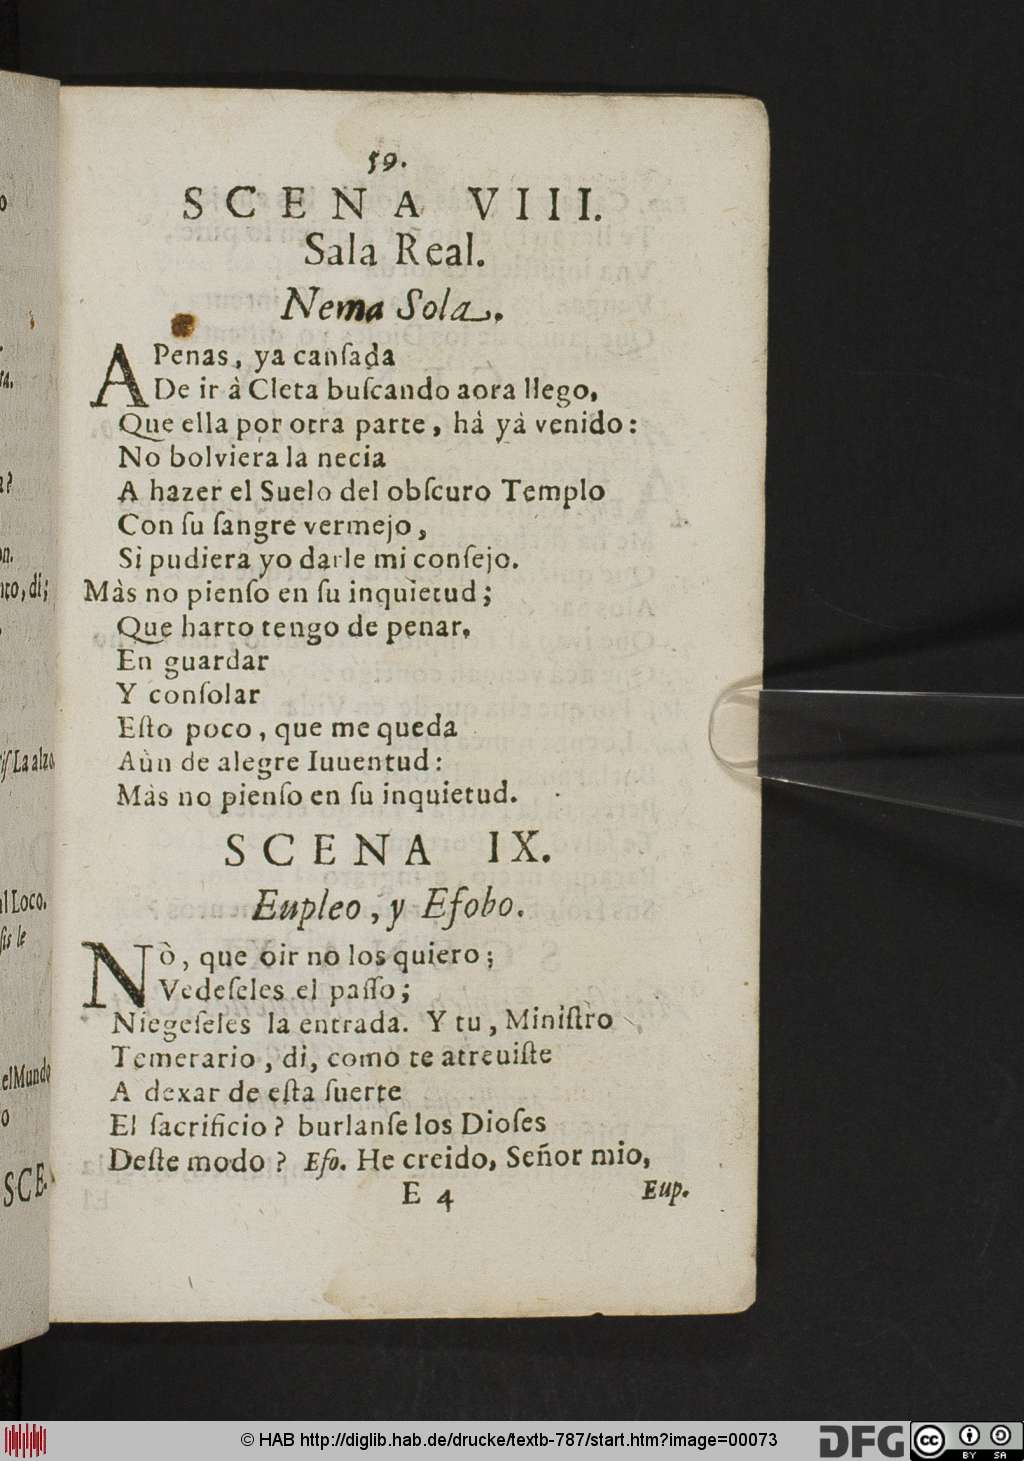 59.
SCENA VIII.
Sala Real.
Nema Sola.
APenas, ya canſada
De ir à Cleta buſcando aora llego,
Que ella por otra parte, hà yà venido:
No bolviera la necia
A hazer el Suelo del obſcuro Templo
Con ſu ſangre vermejo,
Si pudiera yo darle mi conſejo.
Màs no pienſo en ſu inquietud;
Que harto tengo de penar,
En guardar
Y conſolar
Eſto poco, que me queda
Aùn de alegre Iuuentud:
Màs no pienſo en ſu inquietud.
SCENA IX.
Eupleo, y Efobo.
NÒ, que oir no los quiero;
Vedeſeles el paſſo;
Niegeſeles la entrada. Y tu, Miniſtro
Temerario, di, como te atreuiſte
A dexar de eſta ſuerte
El ſacrificio? burlanſe los Dioſes
Deſte modo? Efo. He creido, Señor mio,
E 4
Eup.
di;
La alzo
Loco.
ſis le
el Mundo
SCE.
© HAB http://diglib.hab.de/drucke/textb-787/start.htm?image=00073
DFG
cc
BY SA